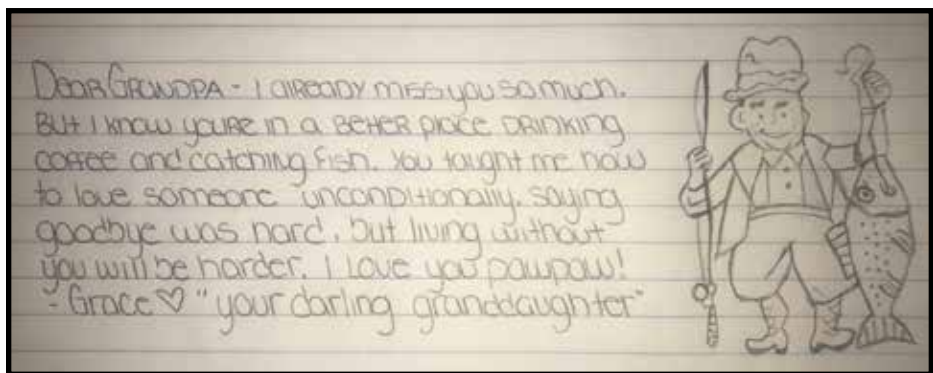 Dear Grandpa - I already miss you so much.
But I know youre in a better place drinking
coffee and catching fish. You taught me how
to love someone unconditionally. saying
goodbye was hard, but living without
you will be harder. I love you pawpaw!
- Grace ♡ "your darling granddaughter"